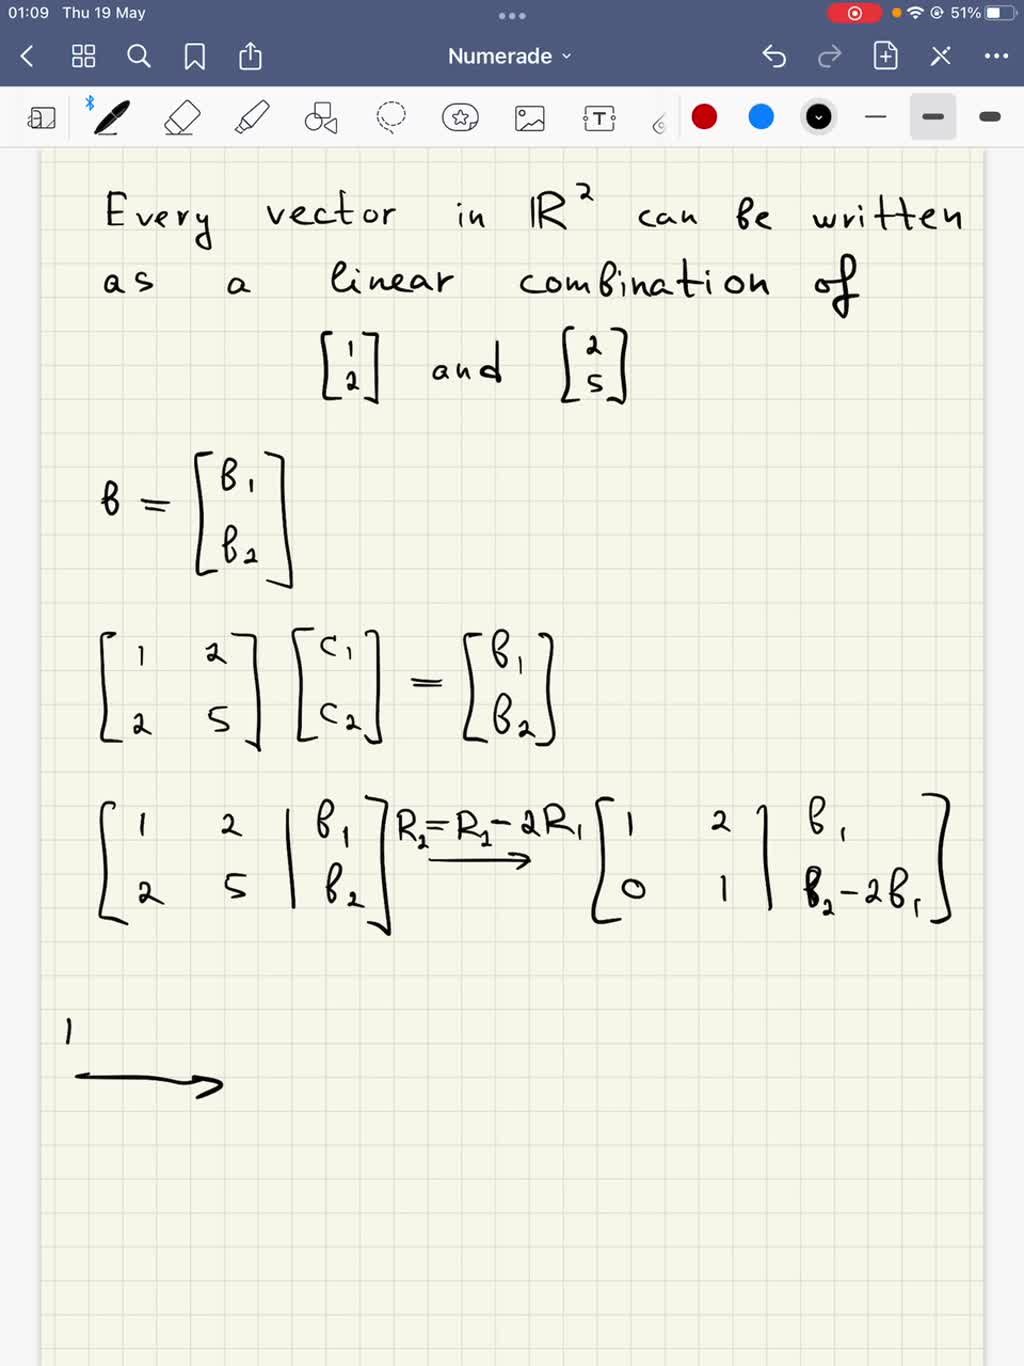 01:09 Thu 19 May 51%
Numerade
T
Every vector in ℝ² can be written
as a linear combination of
[1 2] and [2 5]
b = [b₁ b₂]
[1 2 2 5] [c₁ c₂] = [b₁ b₂]
[1 2 | b₁ 2 5 | b₂] R₂=R₂-2R₁ → [1 2 | b₁ 0 1 | b₂-2b₁]
1
→